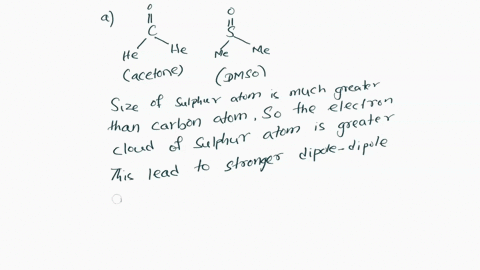 a)
O
O
C
S
He He
Me Me
(acetone) (DMSO)
Size of sulphur atom is much greater
than carbon atom. So the electron
cloud of sulphur atom is greater
This lead to stronger dipole-dipole